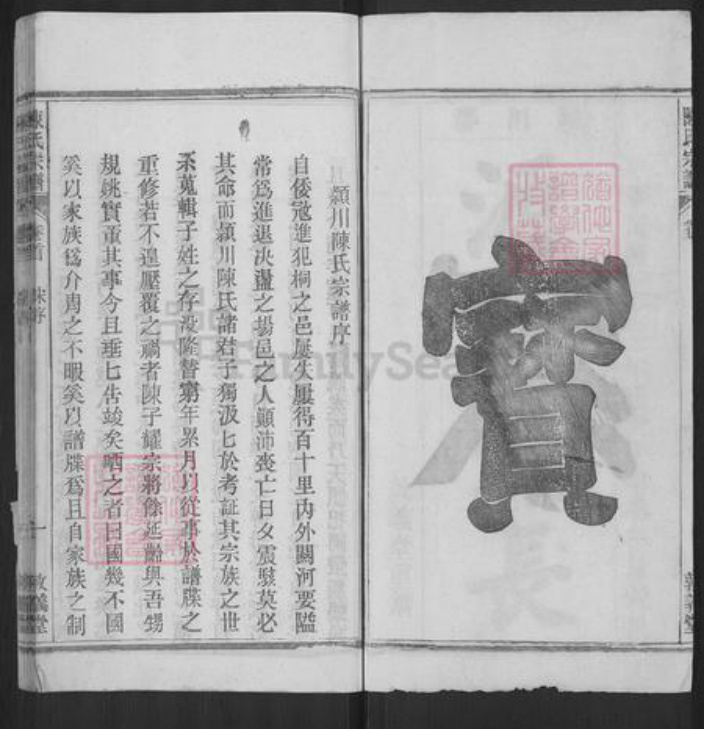 寶
潁川陳氏宗譜序
自倭寇進犯桐之邑屢失屢得百十里內外關河要隘
常爲進退決盪之場邑之人顚沛喪亡日夕震駭莫必
其命而潁川陳氏諸君子獨汲匕於考証其宗族之世
系蒐輯子姓之存沒隆替窮年累月以從事於譜牒之
重修若不遑壓覆之禍者陳子耀宗將餘延齡與吾甥
規姚實董其事今且垂七告竣矣哂之者曰國幾不國
奚以家族爲介胄之不暇奚以譜牒爲且自家族之制
陳氏宗譜
卷首
敦義堂
FamilySearch